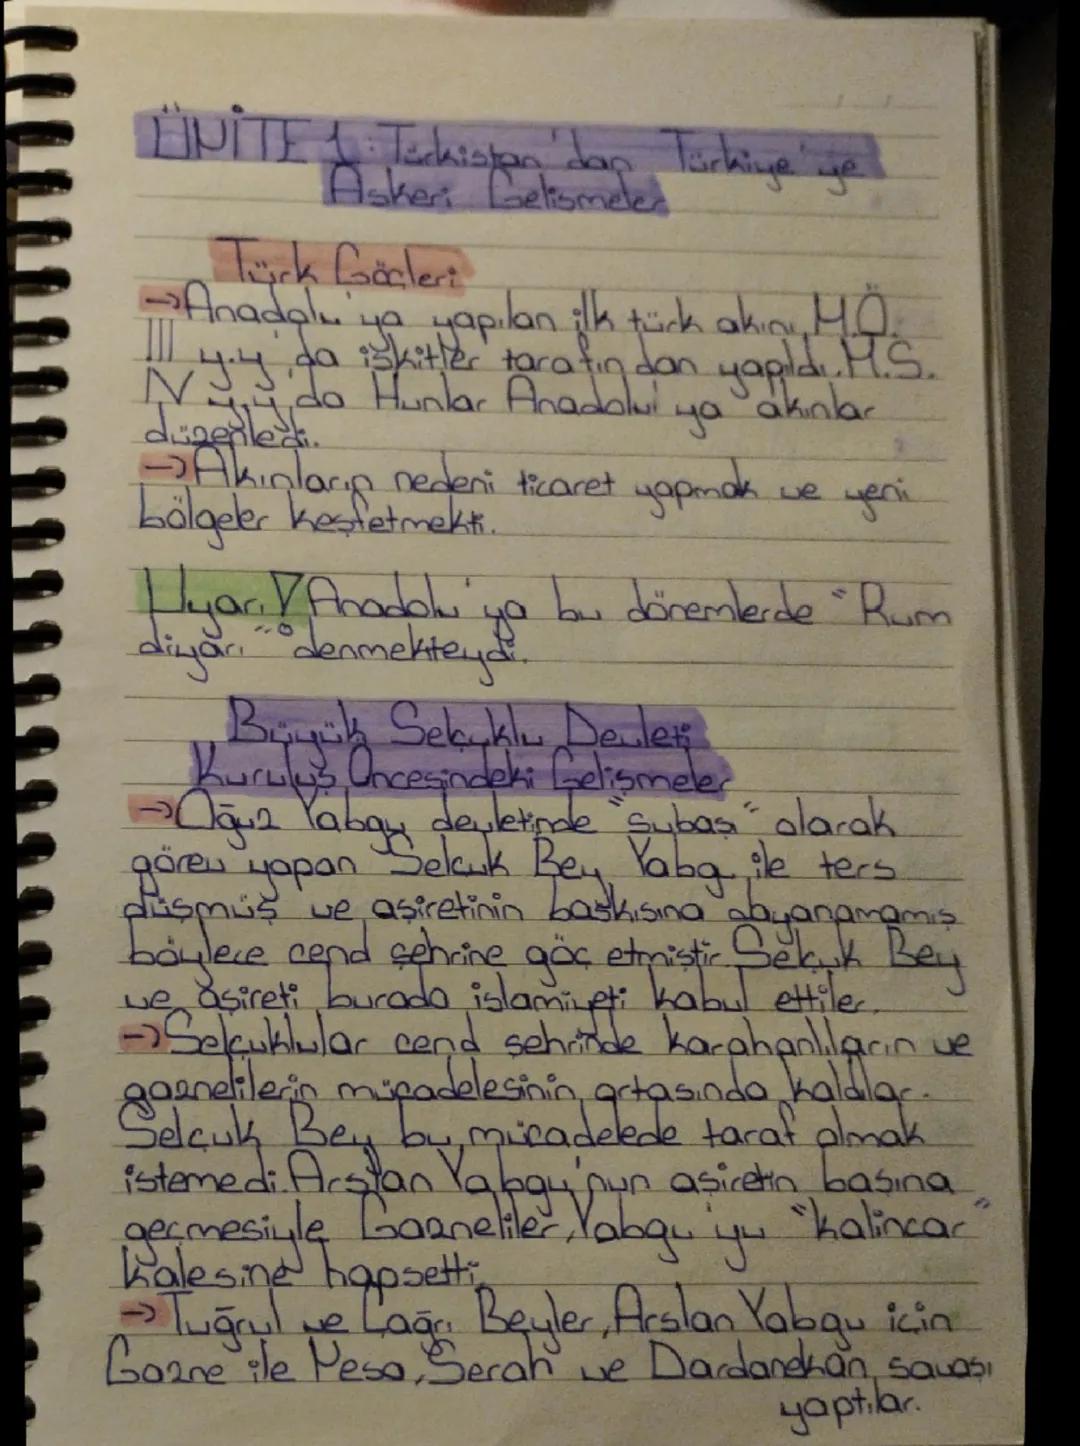 ÜNİTE 1: Türkistan'dan Türkiye'ye
Askeri Gelişmeler
Türk Göçleri
→Anadolu'ya yapılan ilk türk akını, M.Ö.
III y.y'da iskitler tarafından yapıldı. M.S.
IV y.y'da Hunlar Anadolu'ya akınlar
düzenledi.
→Akınların nedeni ticaret yapmak ve yeni
bölgeler keşfetmekti.
Uyarı! Anadolu'ya bu dönemlerde "Rum
diyarı" denmekteydi.
Büyük Selçuklu Devleti
Kuruluş Öncesindeki Gelişmeler
→Oğuz Yabgu devletinde "subaşı" olarak
görev yapan Selçuk Bey Yabg ile ters
düşmüş ve aşiretinin baskısına dayanamamış
böylece cend şehrine göç etmiştir. Selçuk Bey
ve aşireti burada islamiyeti kabul ettiler.
→Selçuklular cend şehrinde karahanlıların ve
gaznelilerin mücadelesinin ortasında kaldılar.
Selçuk Bey bu mücadelede taraf olmak
istemedi. Arslan Yabgu'nun aşiretin başına
geçmesiyle Gazneliler, Yabgu'yu "kalincar"
kalesine hapsetti.
→Tuğrul ve Çağrı Beyler, Arslan Yabgu için
Gazne ile Nesa, Serah ve Dardanekan savaşı
yaptılar.